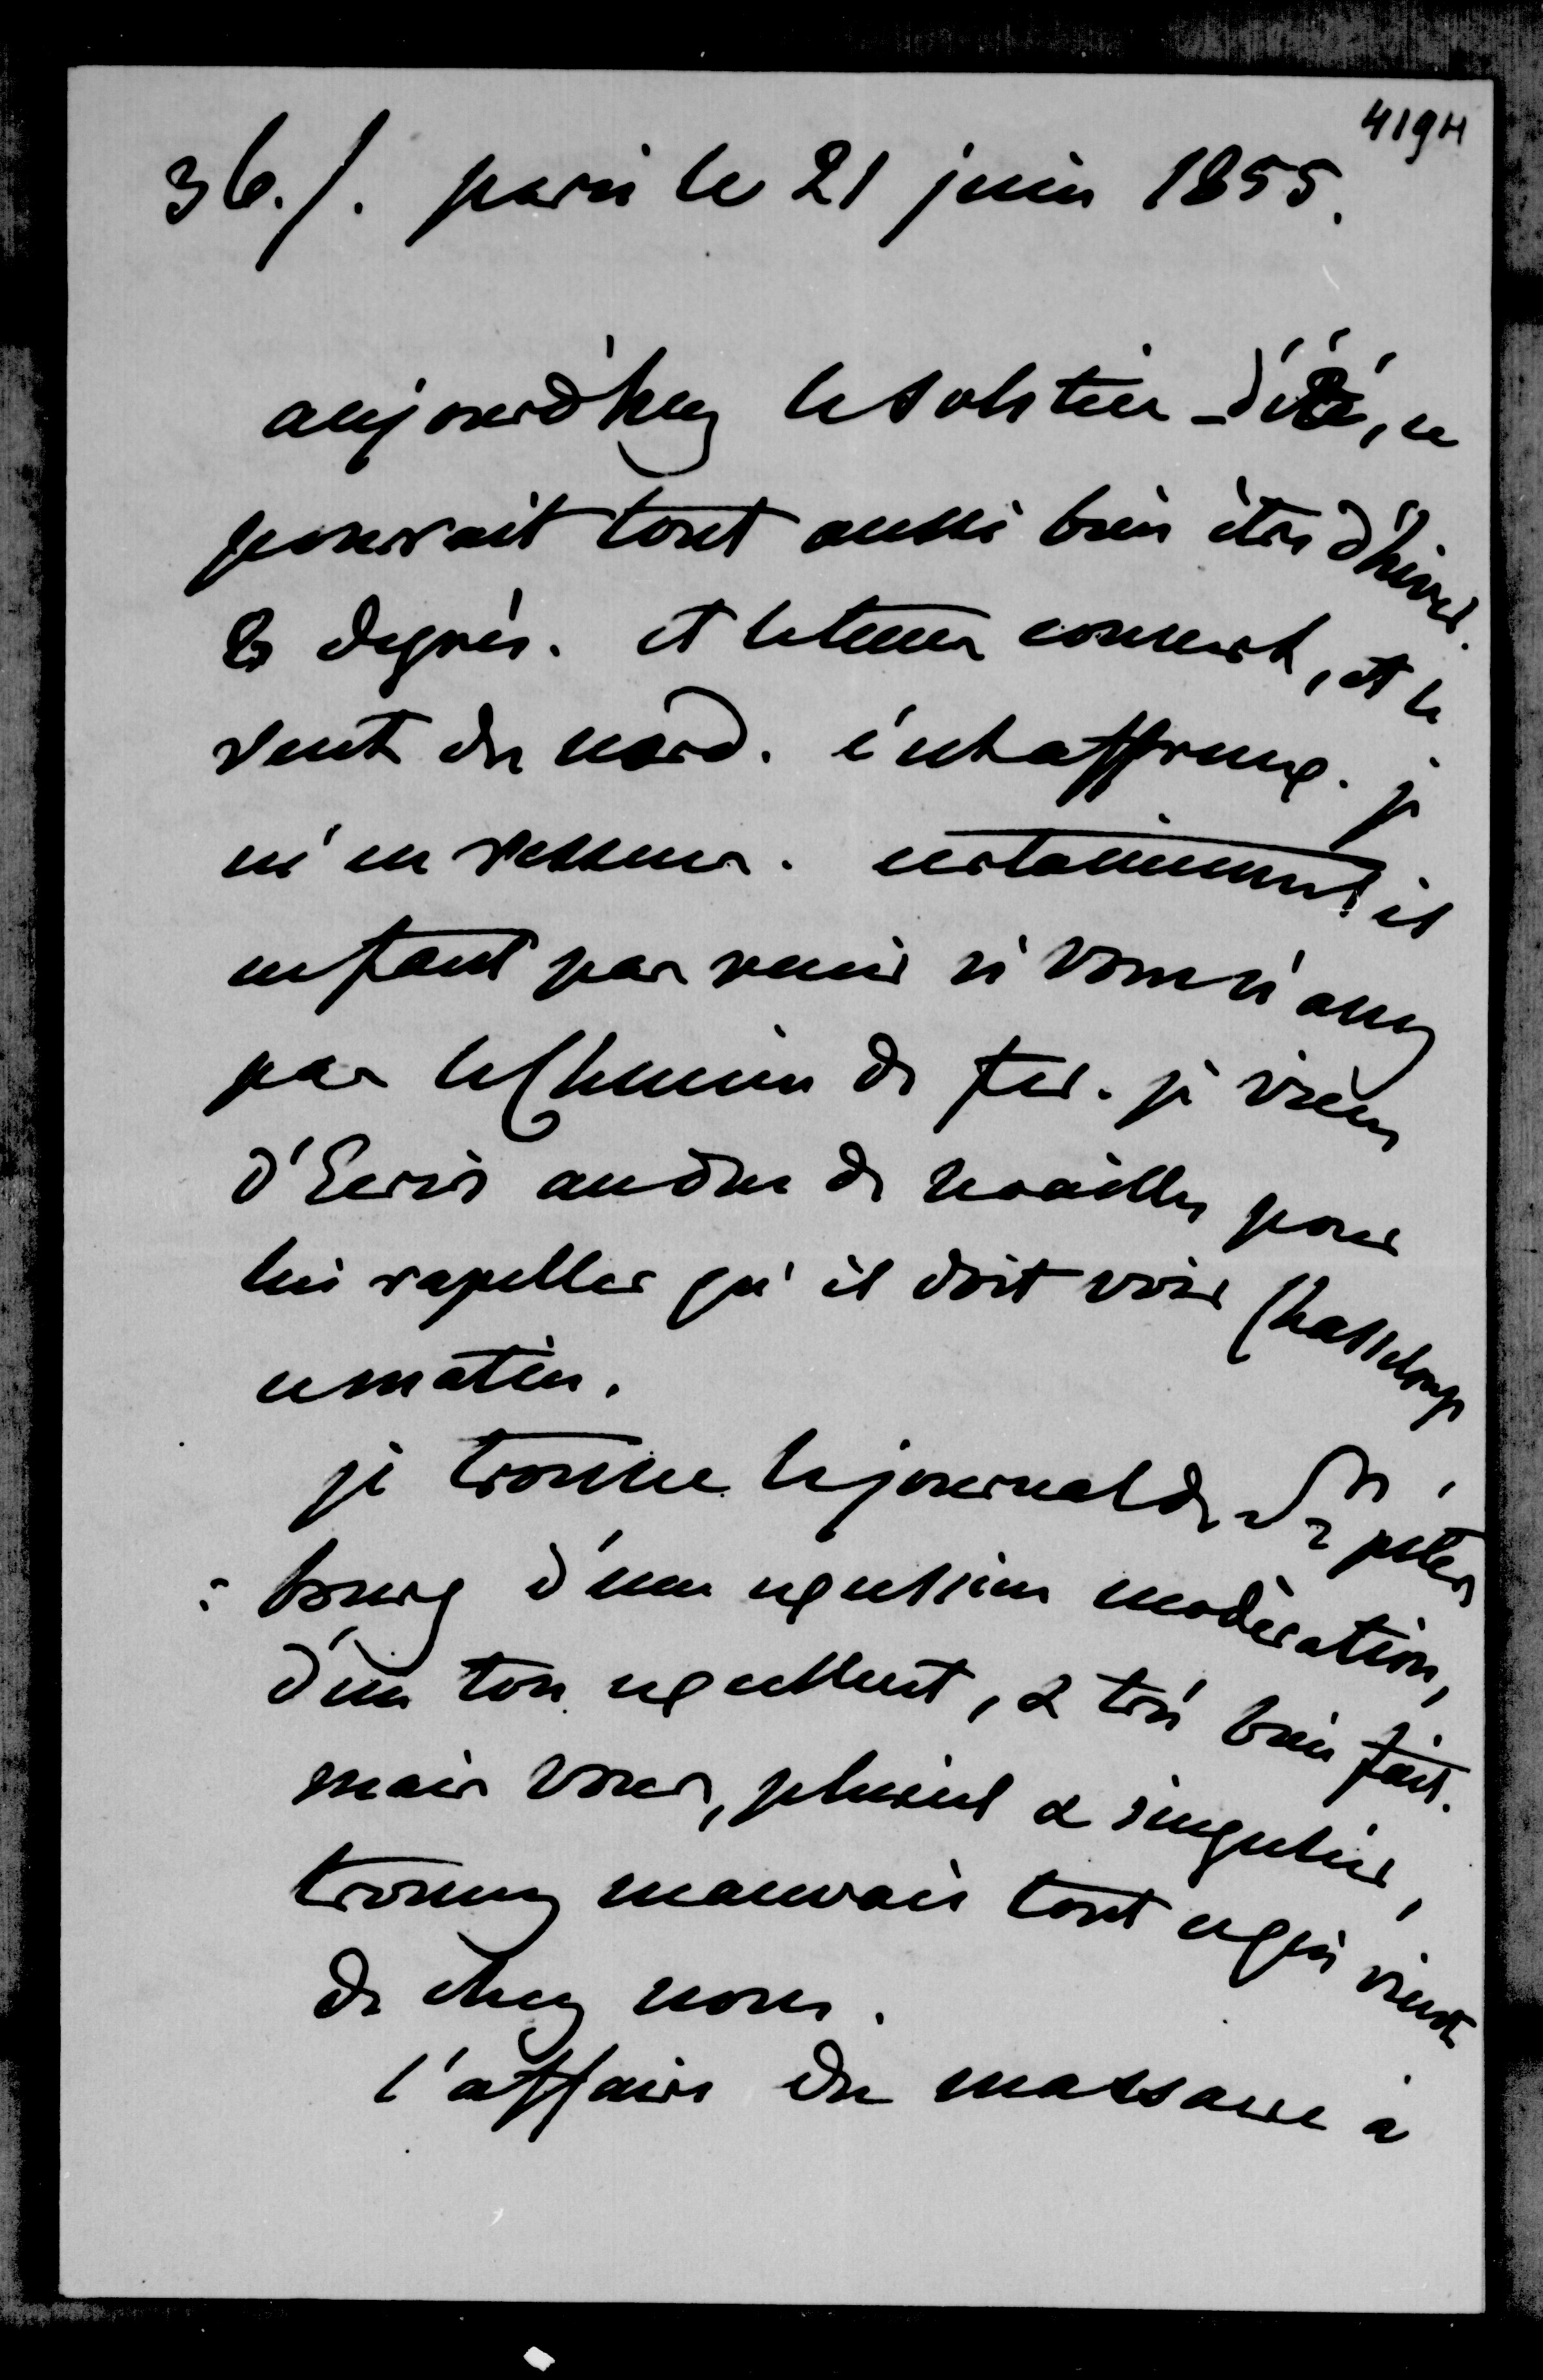 4194
36./. paris le 21 juin 1855.
aujourd'huy le solstice d'été, ce
pourrait tout aussi bien être d'hiver.
8 degrés. et le tems couvert, et le
vent du nord. c'est affreux. je
m'en ressens. certainement il
ne faut pas venir si vous n'avez
pas le Chemin de fer. je viens
d'Ecrire au duc de Noailles pour
lui rapeller qu'il doit voir Chasseloup
ce matin.
je trouve le journal de St péters
=bourg d'une excessive modération,
d'un ton excellent, & très bien fait.
mais vous, pluriel & singulier,
trouvez mauvais tout ce qui vient
de chez nous.
l'affaire du massacre à